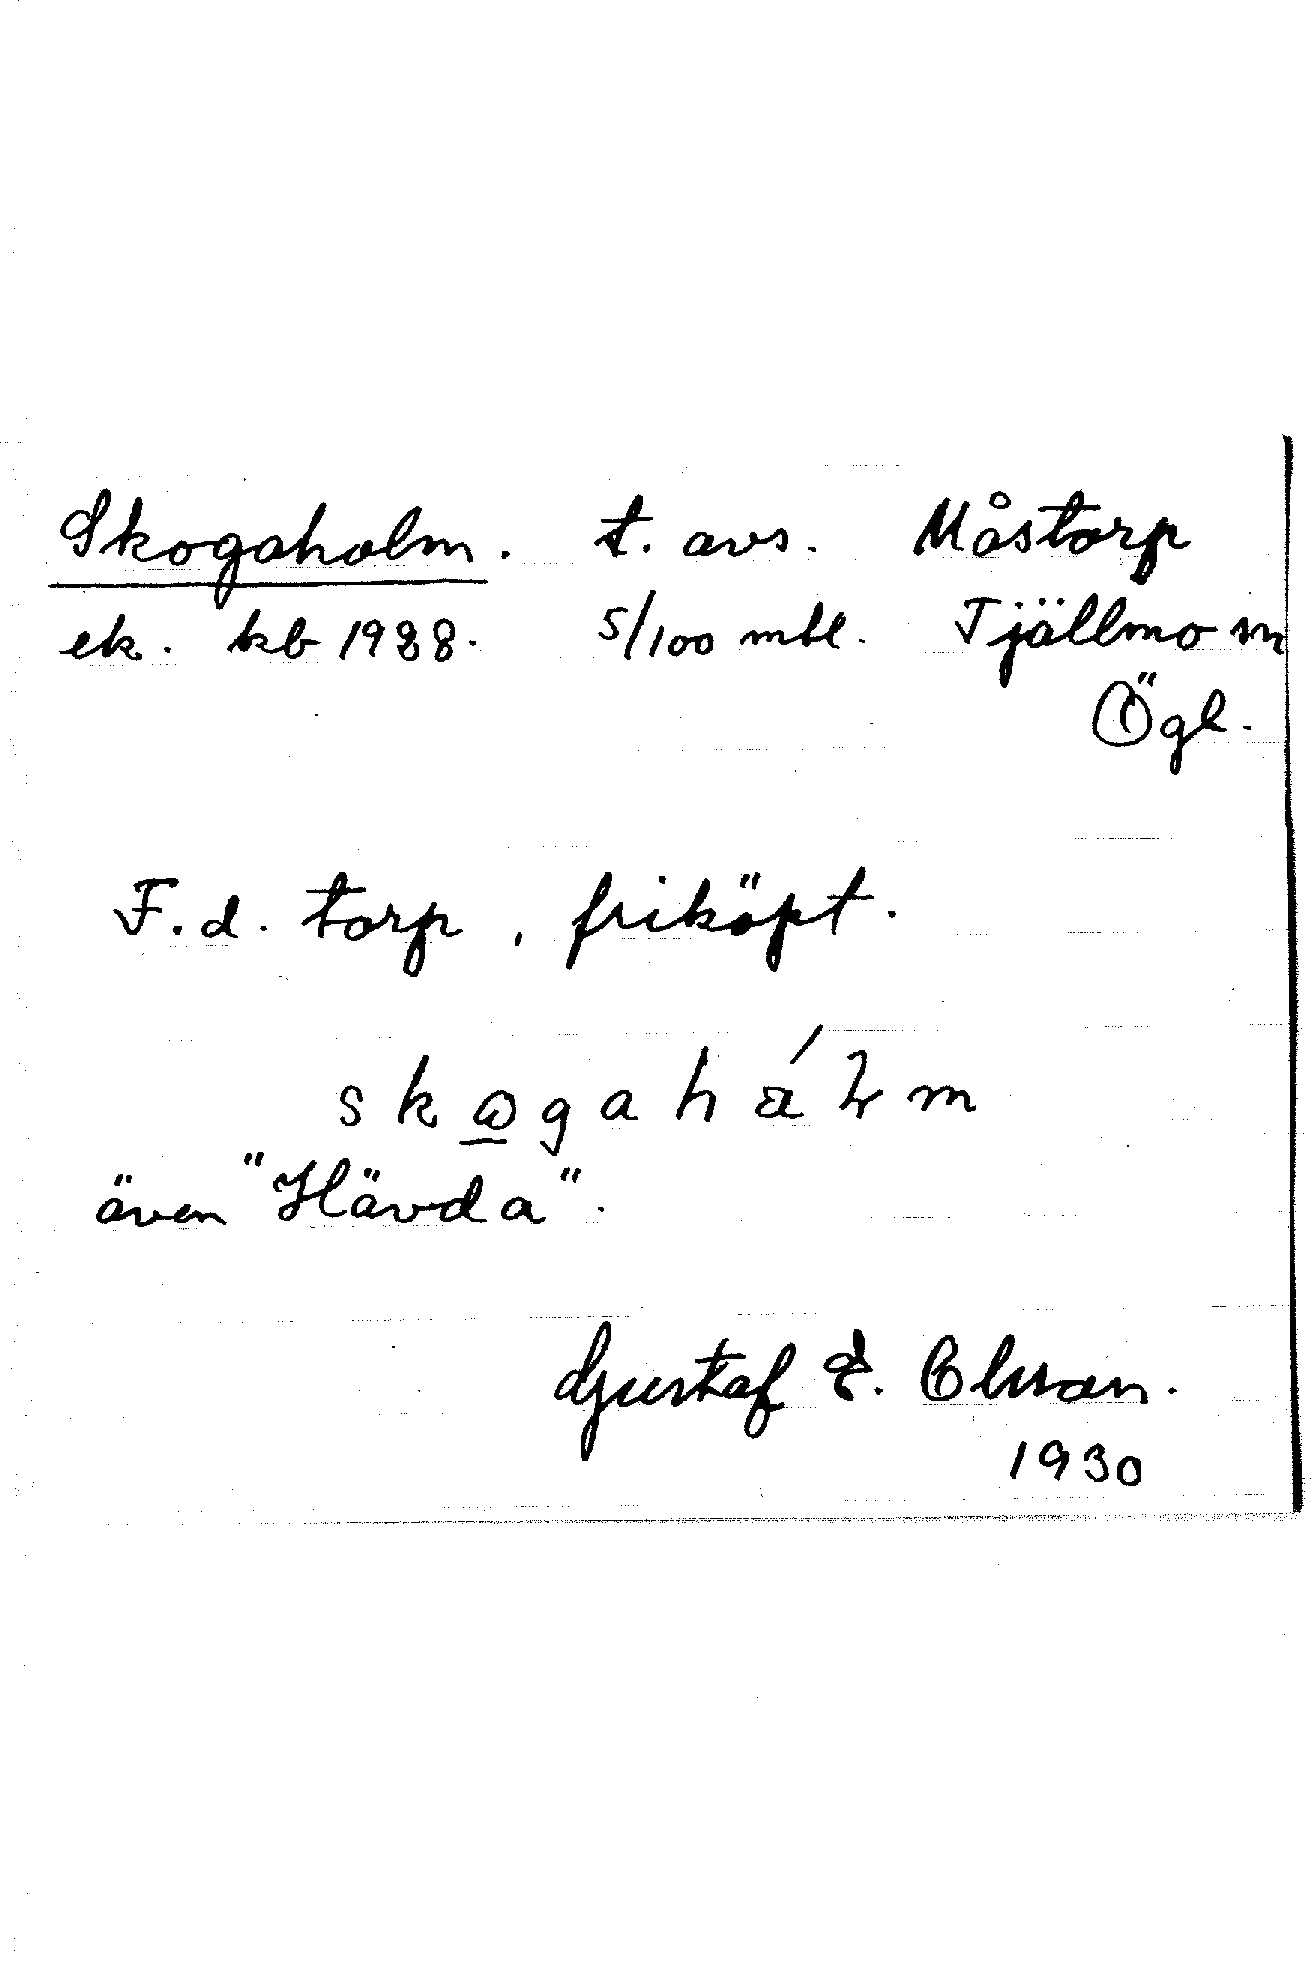 Skogaholm. t. avs. Måstorp
ek. kb 1928. 5/100 mtl. Tjällmo sn
Ögl.
F.d. torp, friköpt.
även "Hävda".
Gustaf E. Olsson.
1930